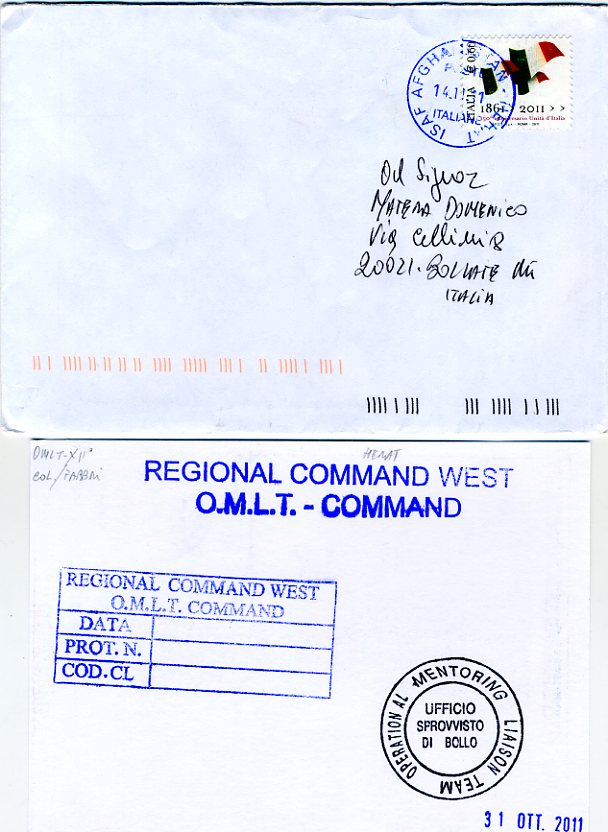 ISAF AFGHANISTAN - HERAT
POSTE
14.11.11
ITALIANE
ITALIA € 0,60
1861 > 2011 > >
150° anniversario Unità d'Italia
Al Signor
MATERA DOMENICO
Via Cellini 8
20021 - BOLLATE MI
ITALIA
OMLT-XII°
COL/FABBRI
HERAT
REGIONAL COMMAND WEST
O.M.L.T. - COMMAND
REGIONAL COMMAND WEST
O.M.L.T. COMMAND
DATA
PROT. N.
COD.CL
OPERATIONAL MENTORING LIAISON TEAM
UFFICIO
SPROVVISTO
DI BOLLO
31 OTT. 2011